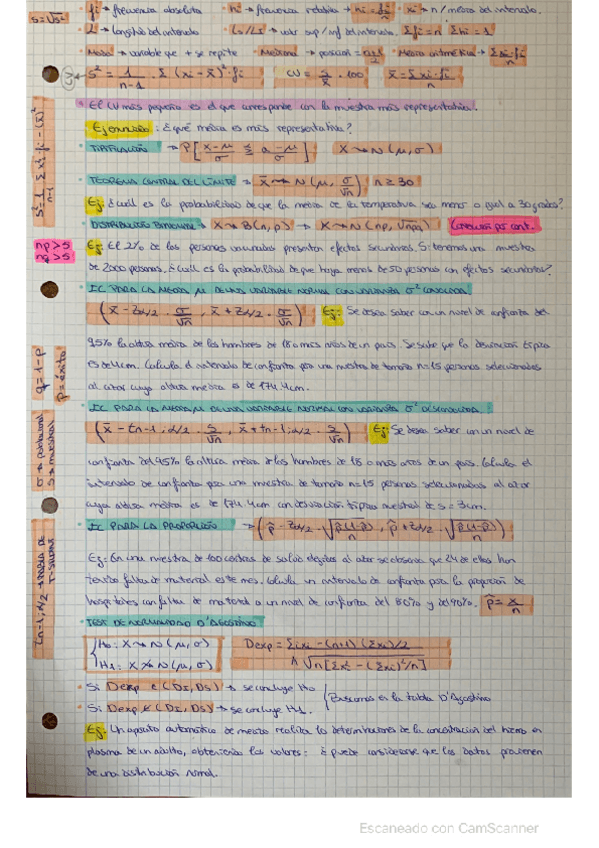 S=√S²
· fi → frecuencia absoluta · hi → frecuencia relativa → hi = fi/n · xi → n / media del intervalo.
· L → Longitud del intervalo · Ls/Li → valor sup/inf del intervalo. Σfi = n Σhi = 1
· Moda → variable que + se repite · Mediana → posición = n+1/2 · Media aritmética → Σxi·fi/n
S² = 1/n-1 · Σ (xi - x̄)²·fi CV = S/x̄ · 100 x̄ = Σxi·fi/n
S² = 1/n-1 Σ xi²·fi - (x̄)²
· El CV más pequeño es el que corresponde con la muestra más representativa.
Ej enunciado: ¿qué media es más representativa?
· TIPIFICACIÓN → P[x-μ/σ ≤ a-μ/σ] X → N(μ, σ)
· TEOREMA CENTRAL DEL LÍMITE → x̄ → N(μ, σ/√n) n ≥ 30
Ej: ¿cuál es la probabilidad de que la media de la temperatura sea menor o igual a 30 grados?
· DISTRIBUCIÓN BINOMIAL → X → B(n, p) → X → N(np, √npq) Corrección por cont.
np > 5
nq > 5
Ej: El 2% de las personas vacunadas presentan efectos secundarios. Si tenemos una muestra
de 2000 personas. ¿Cuál es la probabilidad de que haya menos de 50 personas con efectos secundarios?
· IC PARA LA MEDIA μ DE UNA VARIABLE NORMAL CON VARIANZA σ² CONOCIDA.
(x̄ - Zα/2 · σ/√n , x̄ + Zα/2 · σ/√n) Ej: Se desea saber con un nivel de confianza del
95% la altura media de los hombres de 18 o más años de un país. Se sabe que la desviación típica
es de 4cm. Calcula el intervalo de confianza para una muestra de tamaño n=15 personas seleccionadas
al azar cuya altura media es de 174,4cm.
q = 1-p
p = éxito
· IC PARA LA MEDIA μ DE UNA VARIABLE NORMAL CON VARIANZA σ² DESCONOCIDA:
(x̄ - tn-1;α/2 · S/√n , x̄ + tn-1;α/2 · S/√n) Ej: Se desea saber con un nivel de
confianza del 95% la altura media de los hombres de 18 o más años de un país. Calcula el
intervalo de confianza para una muestra de tamaño n=15 personas seleccionadas al azar
cuya altura media es de 174,4cm con desviación típica muestral de s = 3cm.
σ → poblacional
s → muestral
· IC PARA LA PROPORCIÓN → (p̂ - Zα/2 · √p̂(1-p̂)/n , p̂ + Zα/2 · √p̂(1-p̂)/n)
Ej: En una muestra de 100 centros de salud elegidos al azar se observa que 24 de ellos han
tenido falta de material este mes. Calcula un intervalo de confianza para la proporción de
hospitales con falta de material a un nivel de confianza del 80% y del 90%. p̂ = x/n
tn-1; α/2 → TABLA DE T-STUDENT
· TEST DE NORMALIDAD D'AGOSTINO
{H0: X → N(μ, σ)
H1: X ↛ N(μ, σ)
Dexp = Σixi - (n+1)(Σxi)/2 / n√n[Σxi² - (Σxi)²/n]
· Si Dexp ∈ (DI, DS) → se concluye H0
· Si Dexp ∉ (DI, DS) → se concluye H1.
Buscamos en la tabla D'Agostino
Ej: Un aparato automático de medida realiza la determinaciones de la concentración del hierro en
plasma de un adulto, obteniendo los valores: ¿puede considerarse que los datos provienen
de una distribución normal.
Escaneado con CamScanner